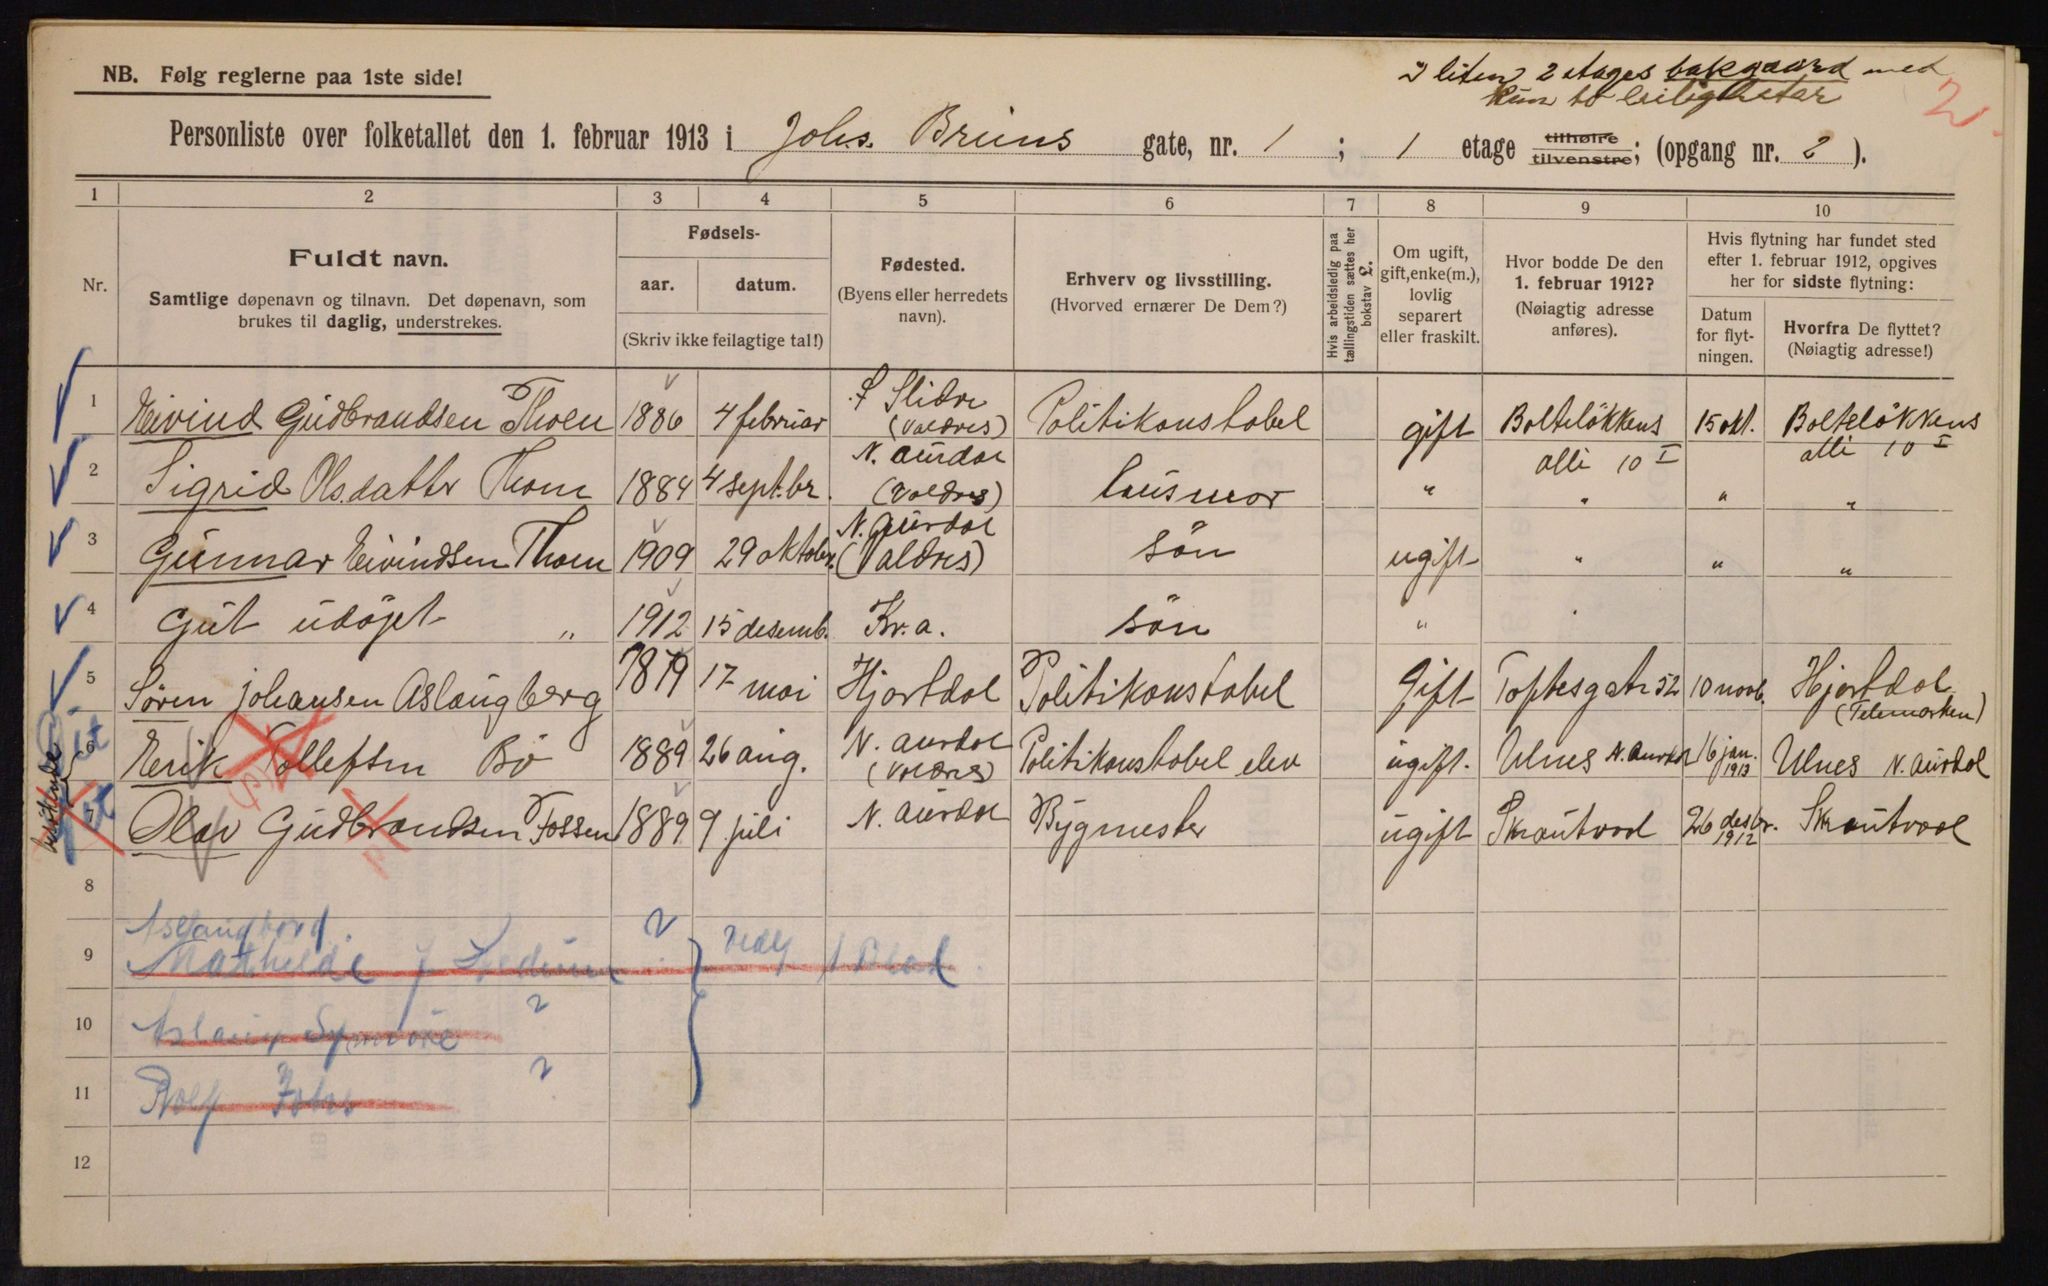 NB. Følg reglerne paa 1ste side!
I liten 2 etages bakgaard med
kun to leiligheter
2
Personliste over folketallet den 1. februar 1913 i Johs. Bruns gate, nr. 1 ; 1 etage tilhøire tilvenstre; (opgang nr. 2 ).
1 2 3 4 5 6 7 8 9 10
Nr.
Fuldt navn.
Samtlige døpenavn og tilnavn. Det døpenavn, som
brukes til daglig, understrekes.
Fødsels-
aar. datum.
(Skriv ikke feilagtige tal!)
Fødested.
(Byens eller herredets
navn).
Erhverv og livsstilling.
(Hvorved ernærer De Dem?)
Hvis arbeidsledig paa
tællingstiden sættes her
bokstav L.
Om ugift,
gift, enke(m.),
lovlig
separert
eller fraskilt.
Hvor bodde De den
1. februar 1912?
(Nøiagtig adresse
anføres).
Hvis flytning har fundet sted
efter 1. februar 1912, opgives
her for sidste flytning:
Datum
for flyt-
ningen.
Hvorfra De flyttet?
(Nøiagtig adresse!)
1 Eivind Gudbrandsen Thoen 1886 4 februar S Slidre (Valdres) Politikonstabel gift Bolteløkkens alle 10 I 15 okt. Bolteløkkens alle 10 I
2 Sigrid Olsdatter Thoen 1884 4 septbr. N. Aurdal (Valdres) husmor " " " "
3 Gunnar Eivindsen Thoen 1909 29 oktober N. Aurdal (Valdres) søn ugift " " "
4 Gut udøpt " 1912 15 desemb. Kr.a. søn " "
5 Søren Johansen Aslaugberg 1879 17 mai Hjartdal Politikonstabel gift Toftesgate 52 10 novb. Hjartdal (Telemarken)
6 Eerik Tollefsen Bø 1889 26 aug. N. Aurdal (Valdres) Politikonstabel elev ugift. Ulnes N. Aurdal 16 jan. 1913 Ulnes N. Aurdal
7 Olav Gudbrandsen Fossen 1889 9 juli N. Aurdal Bygmester ugift Skrautvaal 26 desbr. 1912 Skrautvaal
besøkende
8
9 Mathilde
10
11 Rolf
12